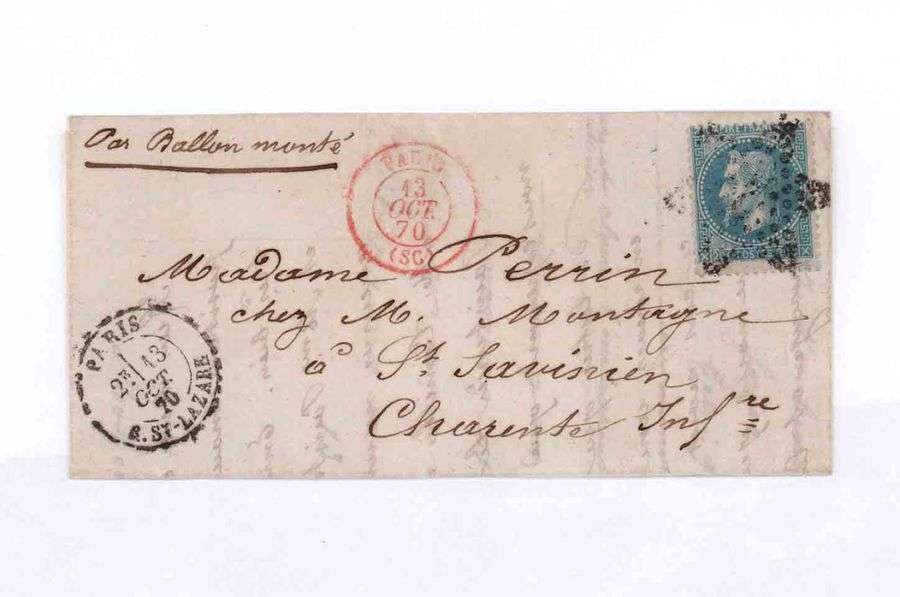 Par Ballon monté
PARIS
13
OCT
70
(SC)
Madame Perrin
chez M. Montagne
à St. Savinien
Charente Infre
PARIS
2E 13
OCT
70
R. ST-LAZARE